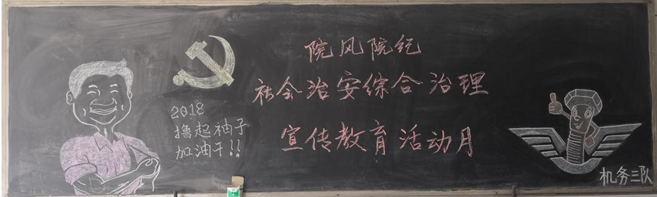 院风院纪
社会治安综合治理
宣传教育活动月
2018
撸起袖子
加油干!!
机务三队